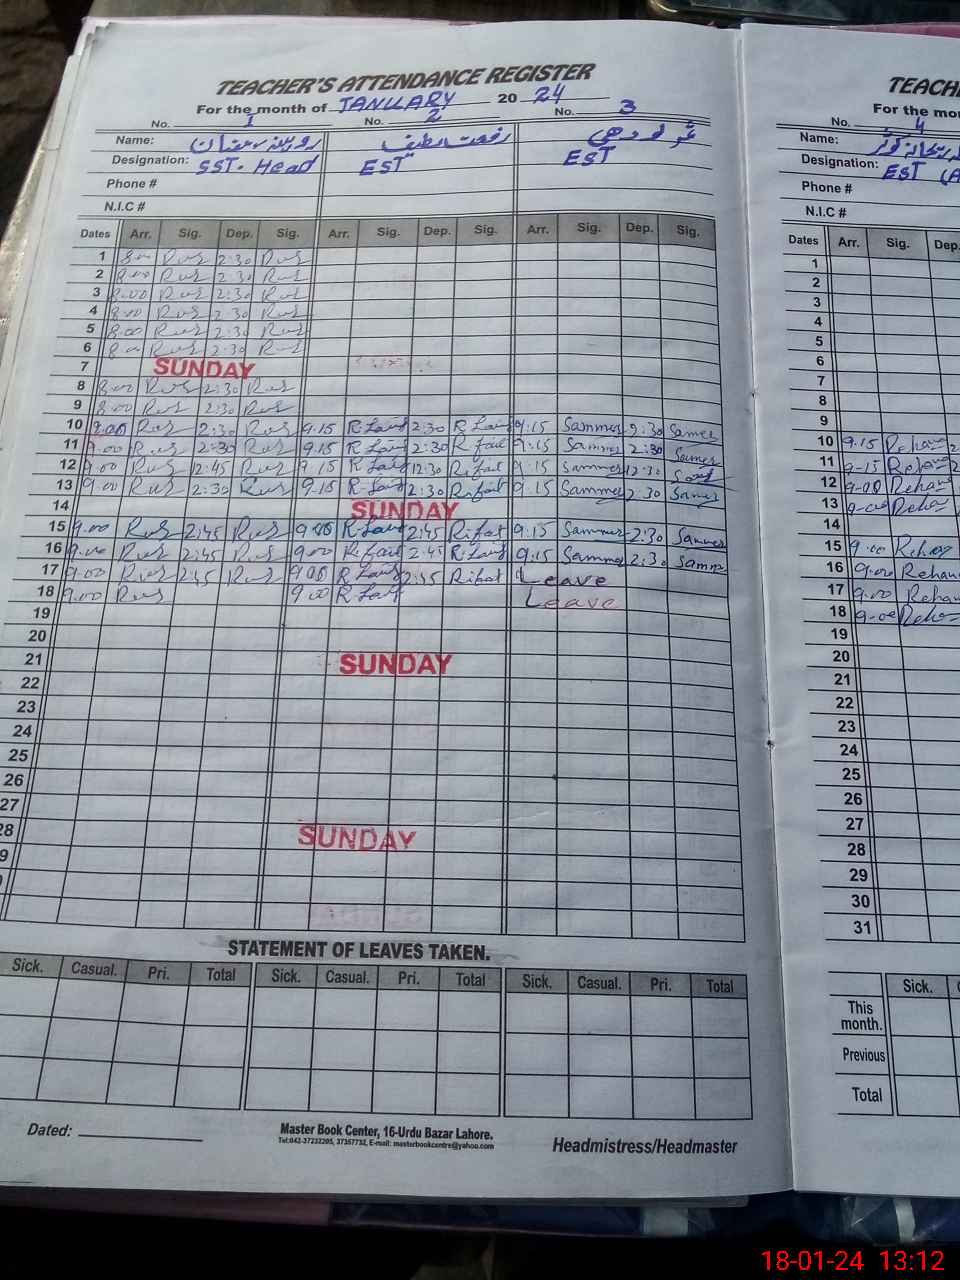 TEACHER'S ATTENDANCE REGISTER
For the month of JANUARY 20 24
No. 1 No. 2 No. 3
Name: روبینہ رمضان رفعت لطیف
Designation: SST. Head EST EST
Phone #
N.I.C #
Dates Arr. Sig. Dep. Sig. Arr. Sig. Dep. Sig. Arr. Sig. Dep. Sig.
1 8:00 Rus 2:30 Rus
2 8:00 Rus 2:30 Rus
3 8:00 Rus 2:30 Rus
4 8:00 Rus 2:30 Rus
5 8:00 Rus 2:30 Rus
6 8:00 Rus 2:30 Rus
7 SUNDAY
8 8:00 Rus 2:30 Rus
9 8:00 Rus 2:30 Rus
10 9:00 Rus 2:30 Rus 9:15 2:30 9:15 Sammer 2:30 Samer
11 9:00 Rus 2:30 Rus 9:15 2:30 9:15 Sammer 2:30 Samer
12 9:00 Rus 12:45 Rus 9:15 12:30 Rifat 9:15 Sammer 12:30
13 9:00 Rus 2:30 Rus 9:15 2:30 Rifat 9:15 Sammer 2:30 Samer
14 SUNDAY
15 9:00 Rus 2:45 Rus 9:00 2:45 Rifat 9:15 Sammer 2:30 Sammer
16 9:00 Rus 2:45 Rus 9:00 2:45 9:15 Samme 2:30 Samme
17 9:00 Rus 2:45 Rus 9:00 2:45 Rifat Leave
18 9:00 Rus 9:00 Leave
19
20
21 SUNDAY
22
23
24
25
26
27
28 SUNDAY
9
STATEMENT OF LEAVES TAKEN.
Sick. Casual. Pri. Total Sick. Casual. Pri. Total Sick. Casual. Pri. Total
Dated:
Master Book Center, 16-Urdu Bazar Lahore.
Tel:042-37232205, 37357732, E-mail: masterbookcentre@yahoo.com
Headmistress/Headmaster
TEACH
For the mo
No. 4
Name: ریحانہ کوثر
Designation: EST (A
Phone #
N.I.C #
Dates Arr. Sig. Dep.
1
2
3
4
5
6
7
8
9
10 9.15 Rehana
11 9-15 Rehana
12 9-00 Rehana
13 9-00 Reha
14
15 9.00 Rehana
16 9.00 Rehana
17 9.00 Rehana
18 9.00 Reha
19
20
21
22
23
24
25
26
27
28
29
30
31
Sick.
This month.
Previous
Total
18-01-24 13:12